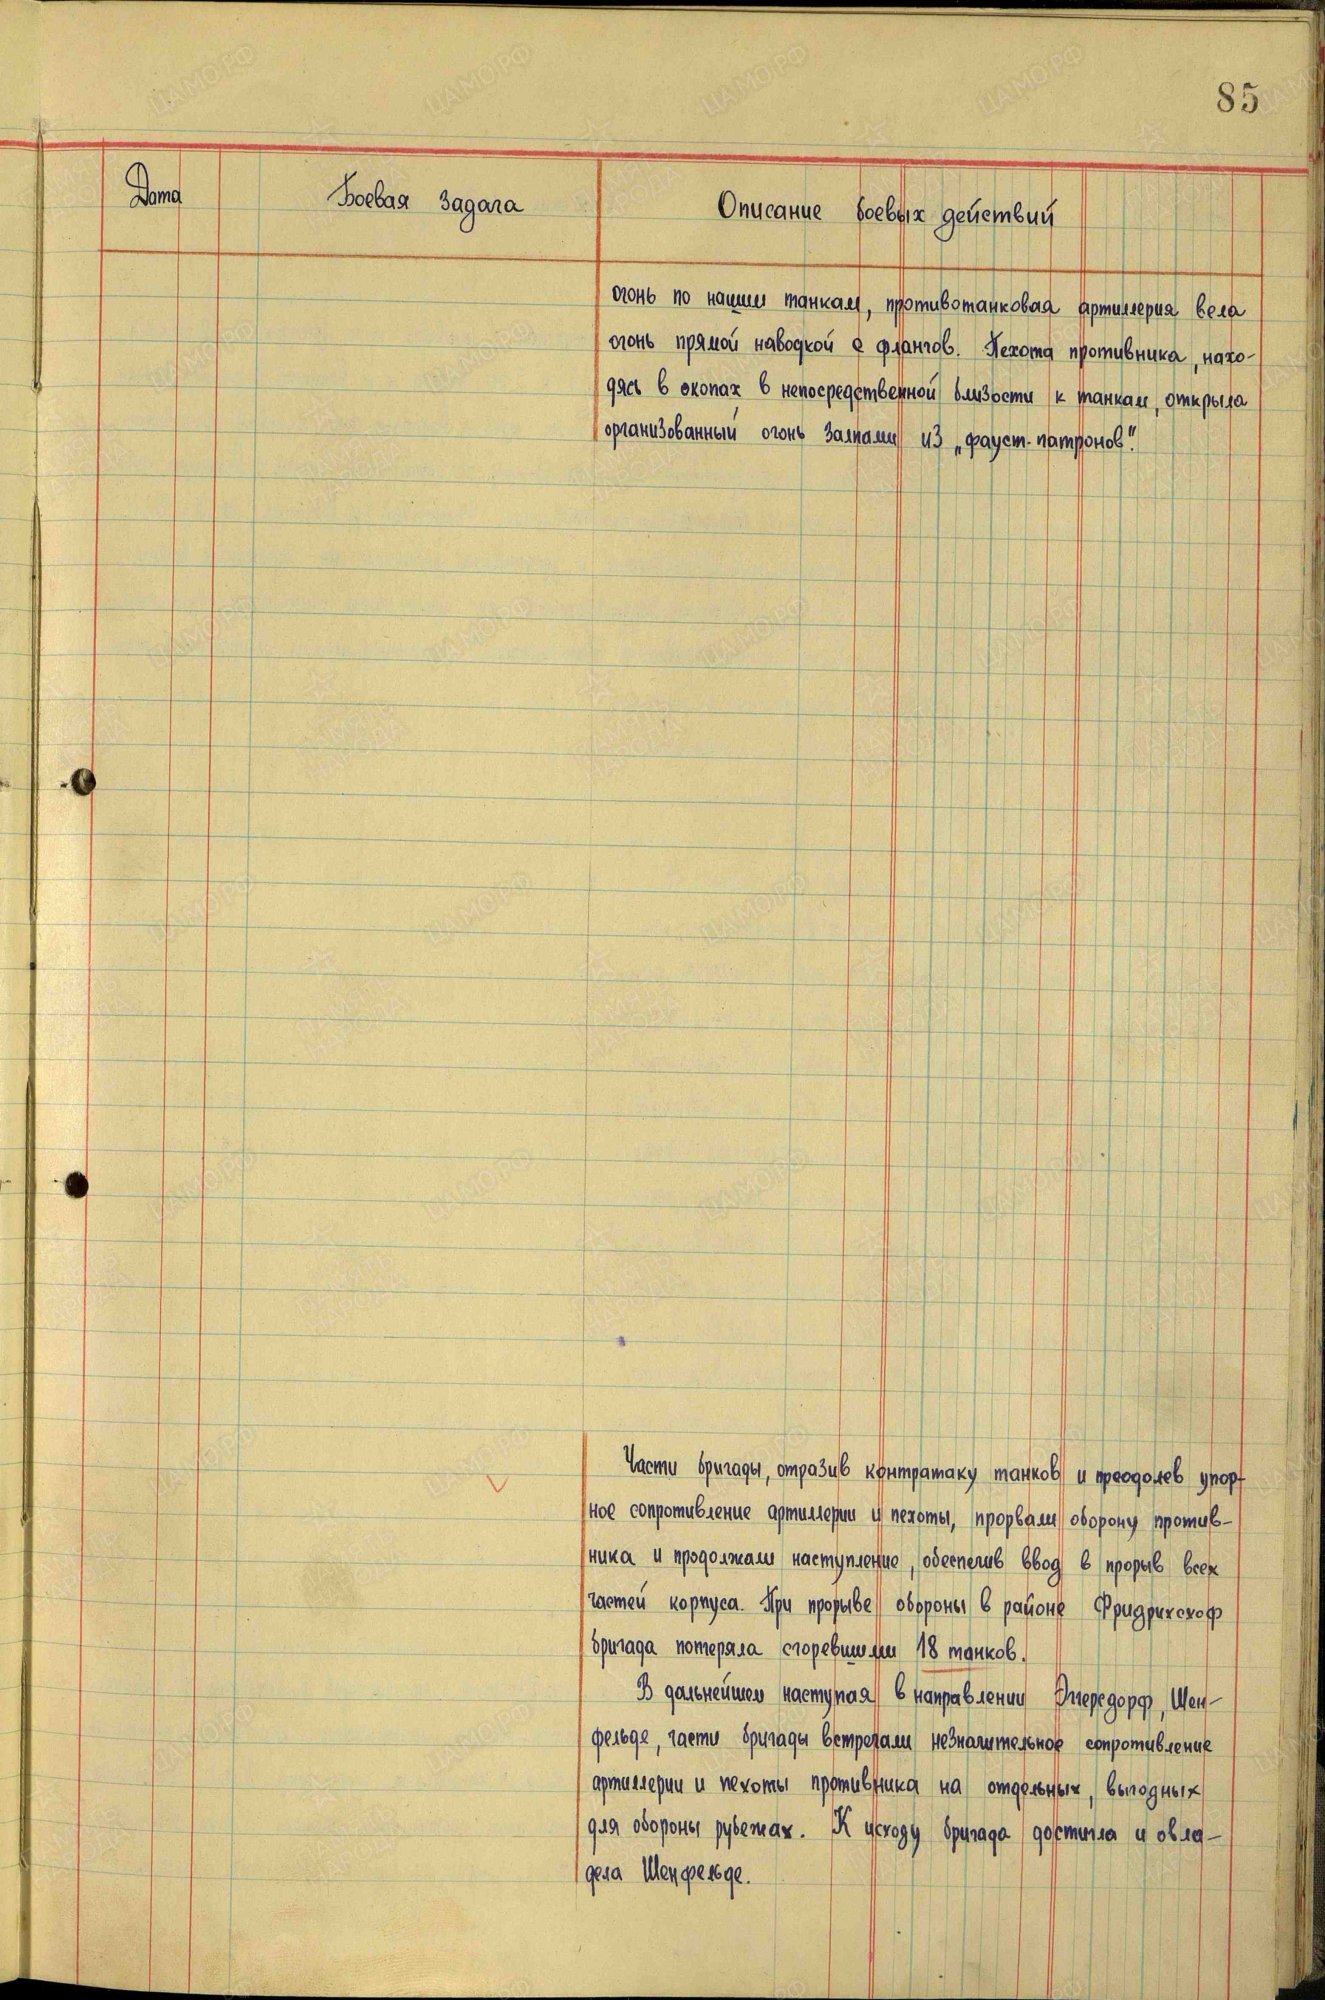 85
Дата
Боевая задача
Описание боевых действий
огонь по нашим танкам, противотанковая артиллерия вела
огонь прямой наводкой с флангов. Пехота противника, нахо-
дясь в окопах в непосредственной близости к танкам, открыла
организованный огонь залпами из „фауст-патронов".
Части бригады, отразив контратаку танков и преодолев упор-
ное сопротивление артиллерии и пехоты, прорвали оборону против-
ника и продолжали наступление, обеспечив ввод в прорыв всех
частей корпуса. При прорыве обороны в районе Фридрихсхоф
бригада потеряла сгоревшими 18 танков.
В дальнейшем наступая в направлении Эггерсдорф, Шен-
фельде, части бригады встречали незначительное сопротивление
артиллерии и пехоты противника на отдельных, выгодных
для обороны рубежах. К исходу бригада достигла и овла-
дела Шенфельде.